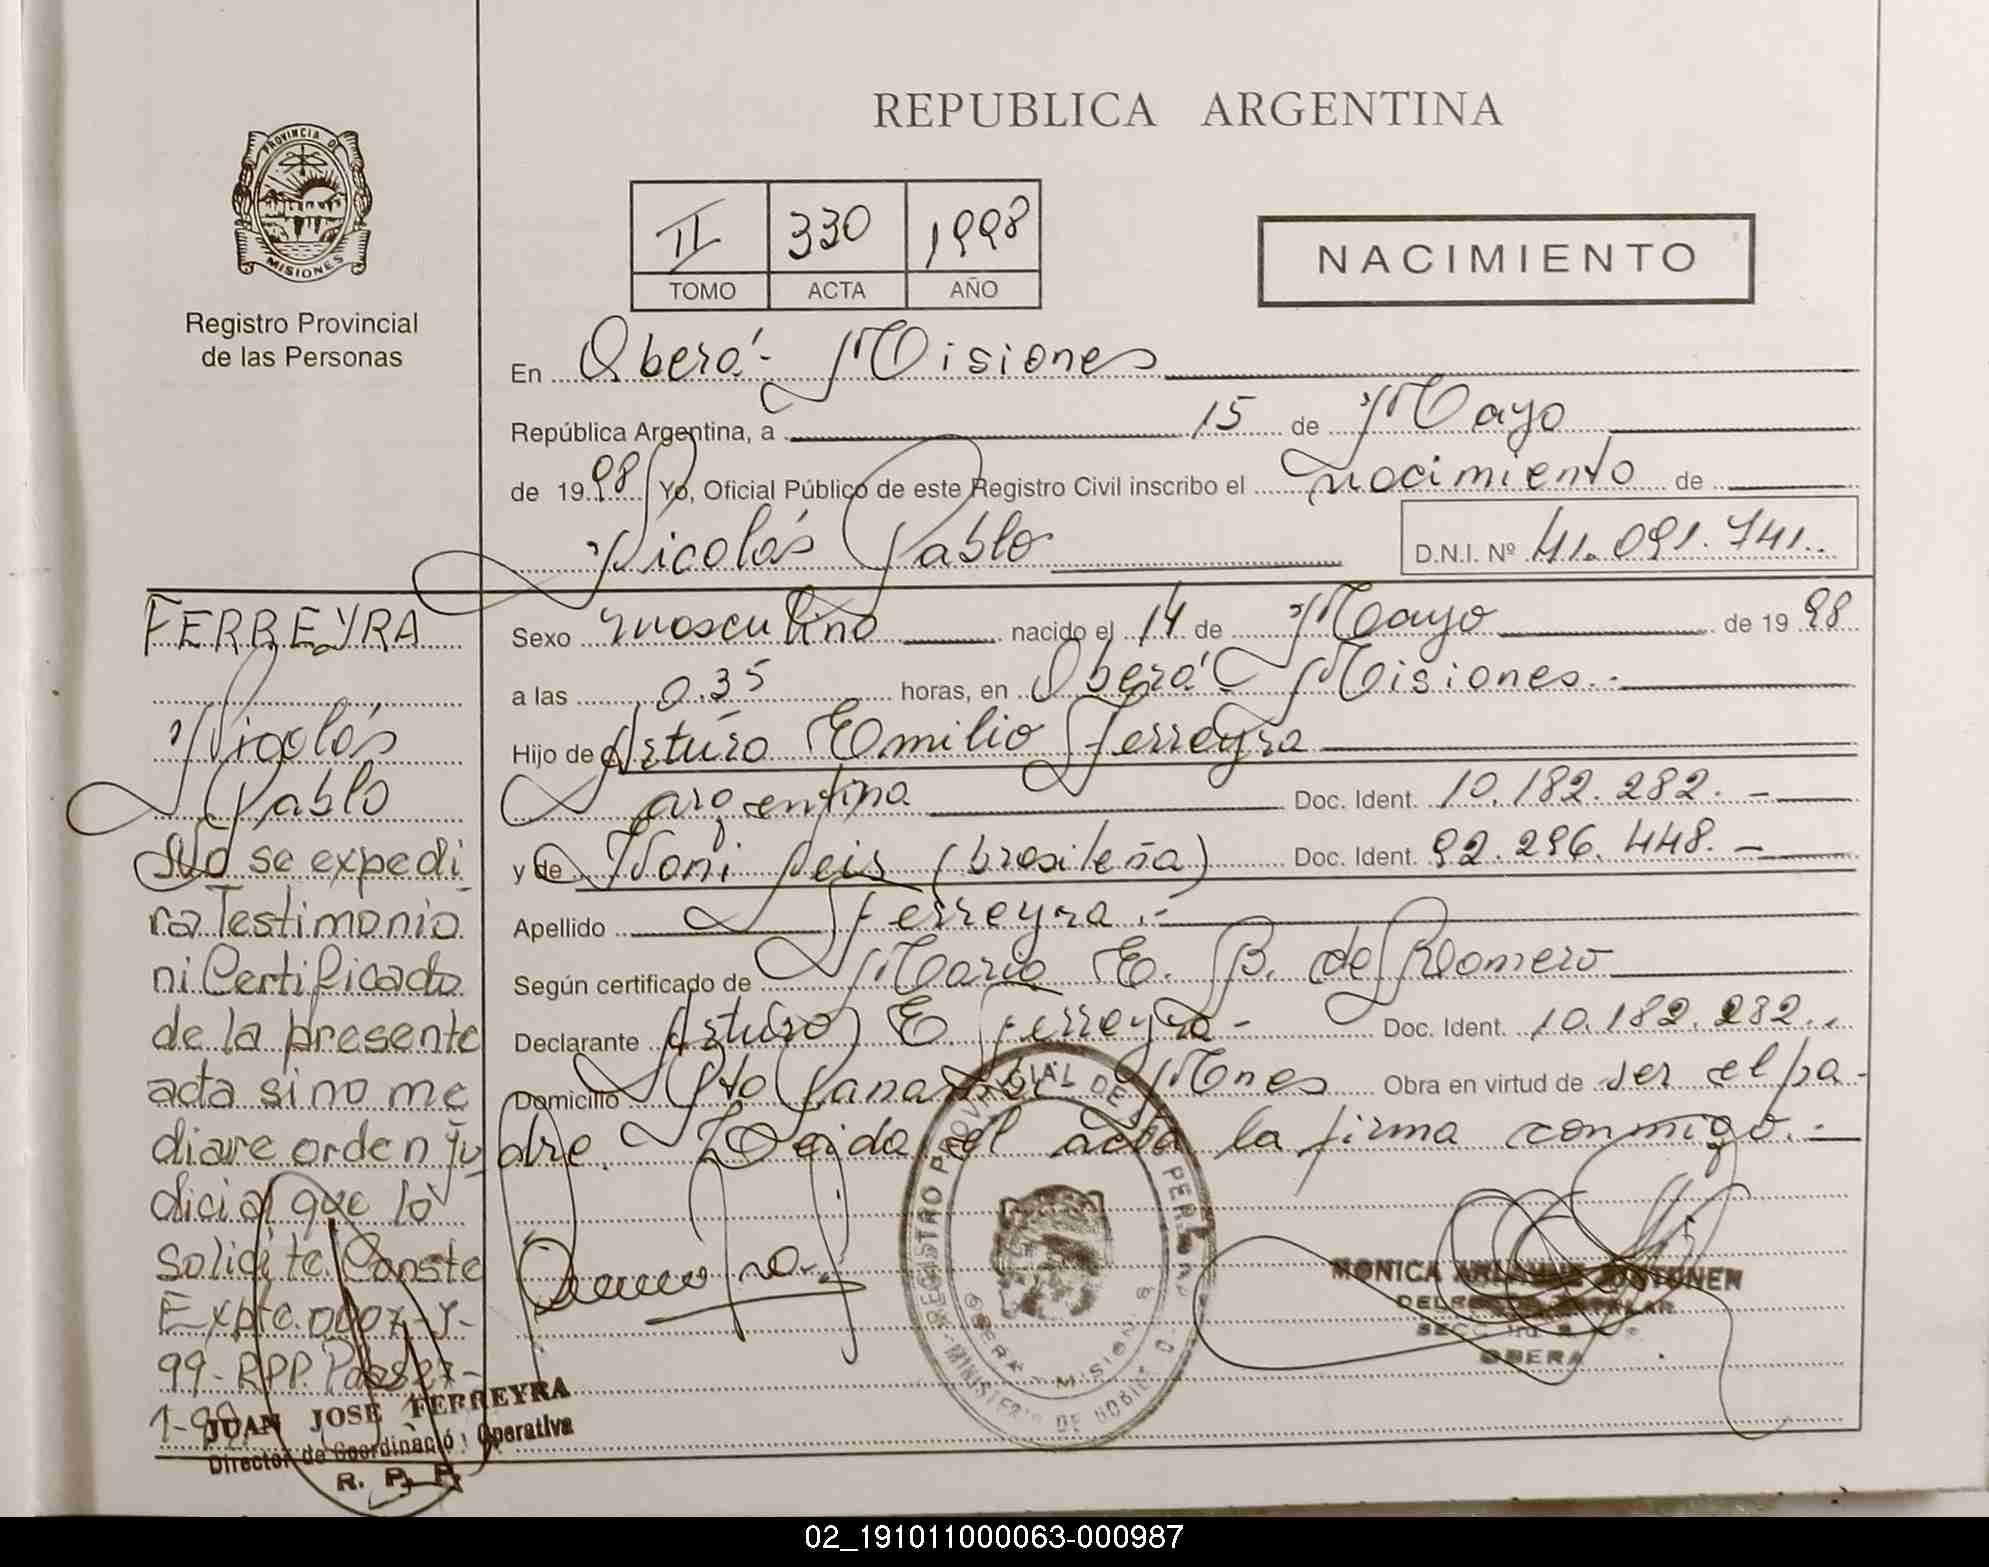 REPUBLICA ARGENTINA
PROVINCIA DE
MISIONES
Registro Provincial
de las Personas
II 330 1998
TOMO ACTA AÑO
NACIMIENTO
En Oberá - Misiones
República Argentina, a 15 de Mayo
de 1998 Yo, Oficial Público de este Registro Civil inscribo el nacimiento de
Nicolás Pablo D.N.I. Nº 41.091.741.
Sexo masculino nacido el 14 de Mayo de 1998
a las 0.35 horas, en Oberá - Misiones.-
Hijo de Arturo Emilio Ferreyra
argentina Doc. Ident. 10.182.282.-
y de Noni (brasileña) Doc. Ident. 92.296.448.-
Apellido Ferreyra.-
Según certificado de Maria E. B. de Romero
Declarante Arturo E. Ferreyra - Doc. Ident. 10.182.282..
Domicilio Pto Panambi Mnes Obra en virtud de ser el pa-
dre. Leida el acta la firma conmigo.-
FERREYRA
Nicolás
Pablo
No se expedi-
ra Testimonio
ni Certificado
de la presente
acta si no me
diare orden Ju
dicial que lo
solicite. Conste
Expte.
99- RPP.
REGISTRO PROVINCIAL DE LAS PERSONAS
OBERA - MISIONES
MINISTERIO DE GOBIERNO
MONICA
OBERA
JUAN JOSE FERREYRA
Director de Coordinació Operativa
R. P. P.
02_191011000063-000987